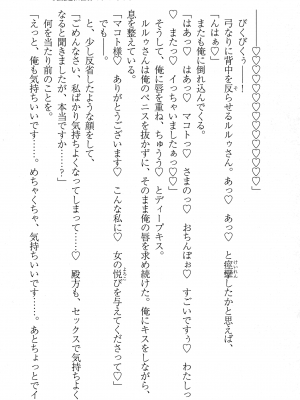 ――――♡♡♡♡♡♡♡♡♡♡♡♡♡♡♡♡♡♡！！
びくびくぅ――！
弓なりに背中を反らせるルルゥさん。あっ♡　あっ♡　と痙攣したかと思えば、
「んはぁ♡」
またも俺に倒れ込んでくる。
「はあっ♡　はあっ♡　マコトっ♡　さまのっ♡　おちんぽぉ♡　すごいですぅ♡　わたしっ
♡　またっ♡　イっちゃいましたぁっ♡♡」
そうして、俺に唇を重ね、ちゅうっ♡　とディープキス。
ルルゥさんは俺のペニスを抜かずに、そのまま俺の唇を求め続けた。俺にキスをしながら、
息を整えている。
「マコト様♡　ありがとうございます♡　こんな私に♡　女の悦びを与えてくださって♡
でも……」
と、少し反省したような顔をして、
「ごめんなさい、私ばかり気持ちよくなってしまって……♡　殿方も、セックスで気持ちよく
なると聞きましたが、本当ですか……？」
何を当たり前のことを。
「えっと、俺も気持ちいいです……。めちゃくちゃ、気持ちいいです……。あとちょっとでイ